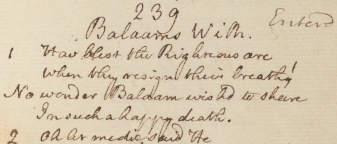 239
Balaams Wish.
Enterd
1 How blest the Righteous are
When they resign their breath!
No wonder Balaam wish'd to share
In such a happy death.
2 Oh let me die, said He